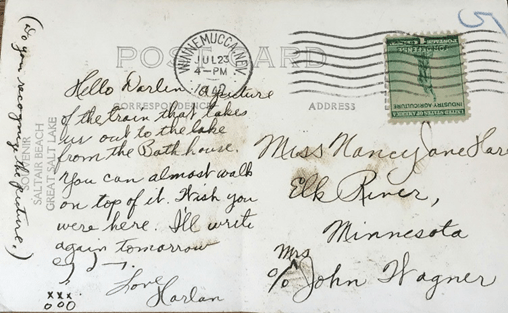 (Do you recognize the picture.)
SOUVENIR
SALTAIR BEACH
GREAT SALT LAKE
POST CARD
CORRESPONDENCE
ADDRESS
WINNEMUCCA, NEV.
JUL 23
4-PM
5
INDUSTRY AGRICULTURE
UNITED STATES OF AMERICA
Hello Darlin: a picture
of the train that takes
us out to the lake
from the Bath house.
You can almost walk
on top of it. Wish you
were here. I'll write
again tomorrow
Love
Harlan
xxx
ooo
Miss Nancy Jane
Elk River,
Minnesota
Mrs
c/o John Wagner